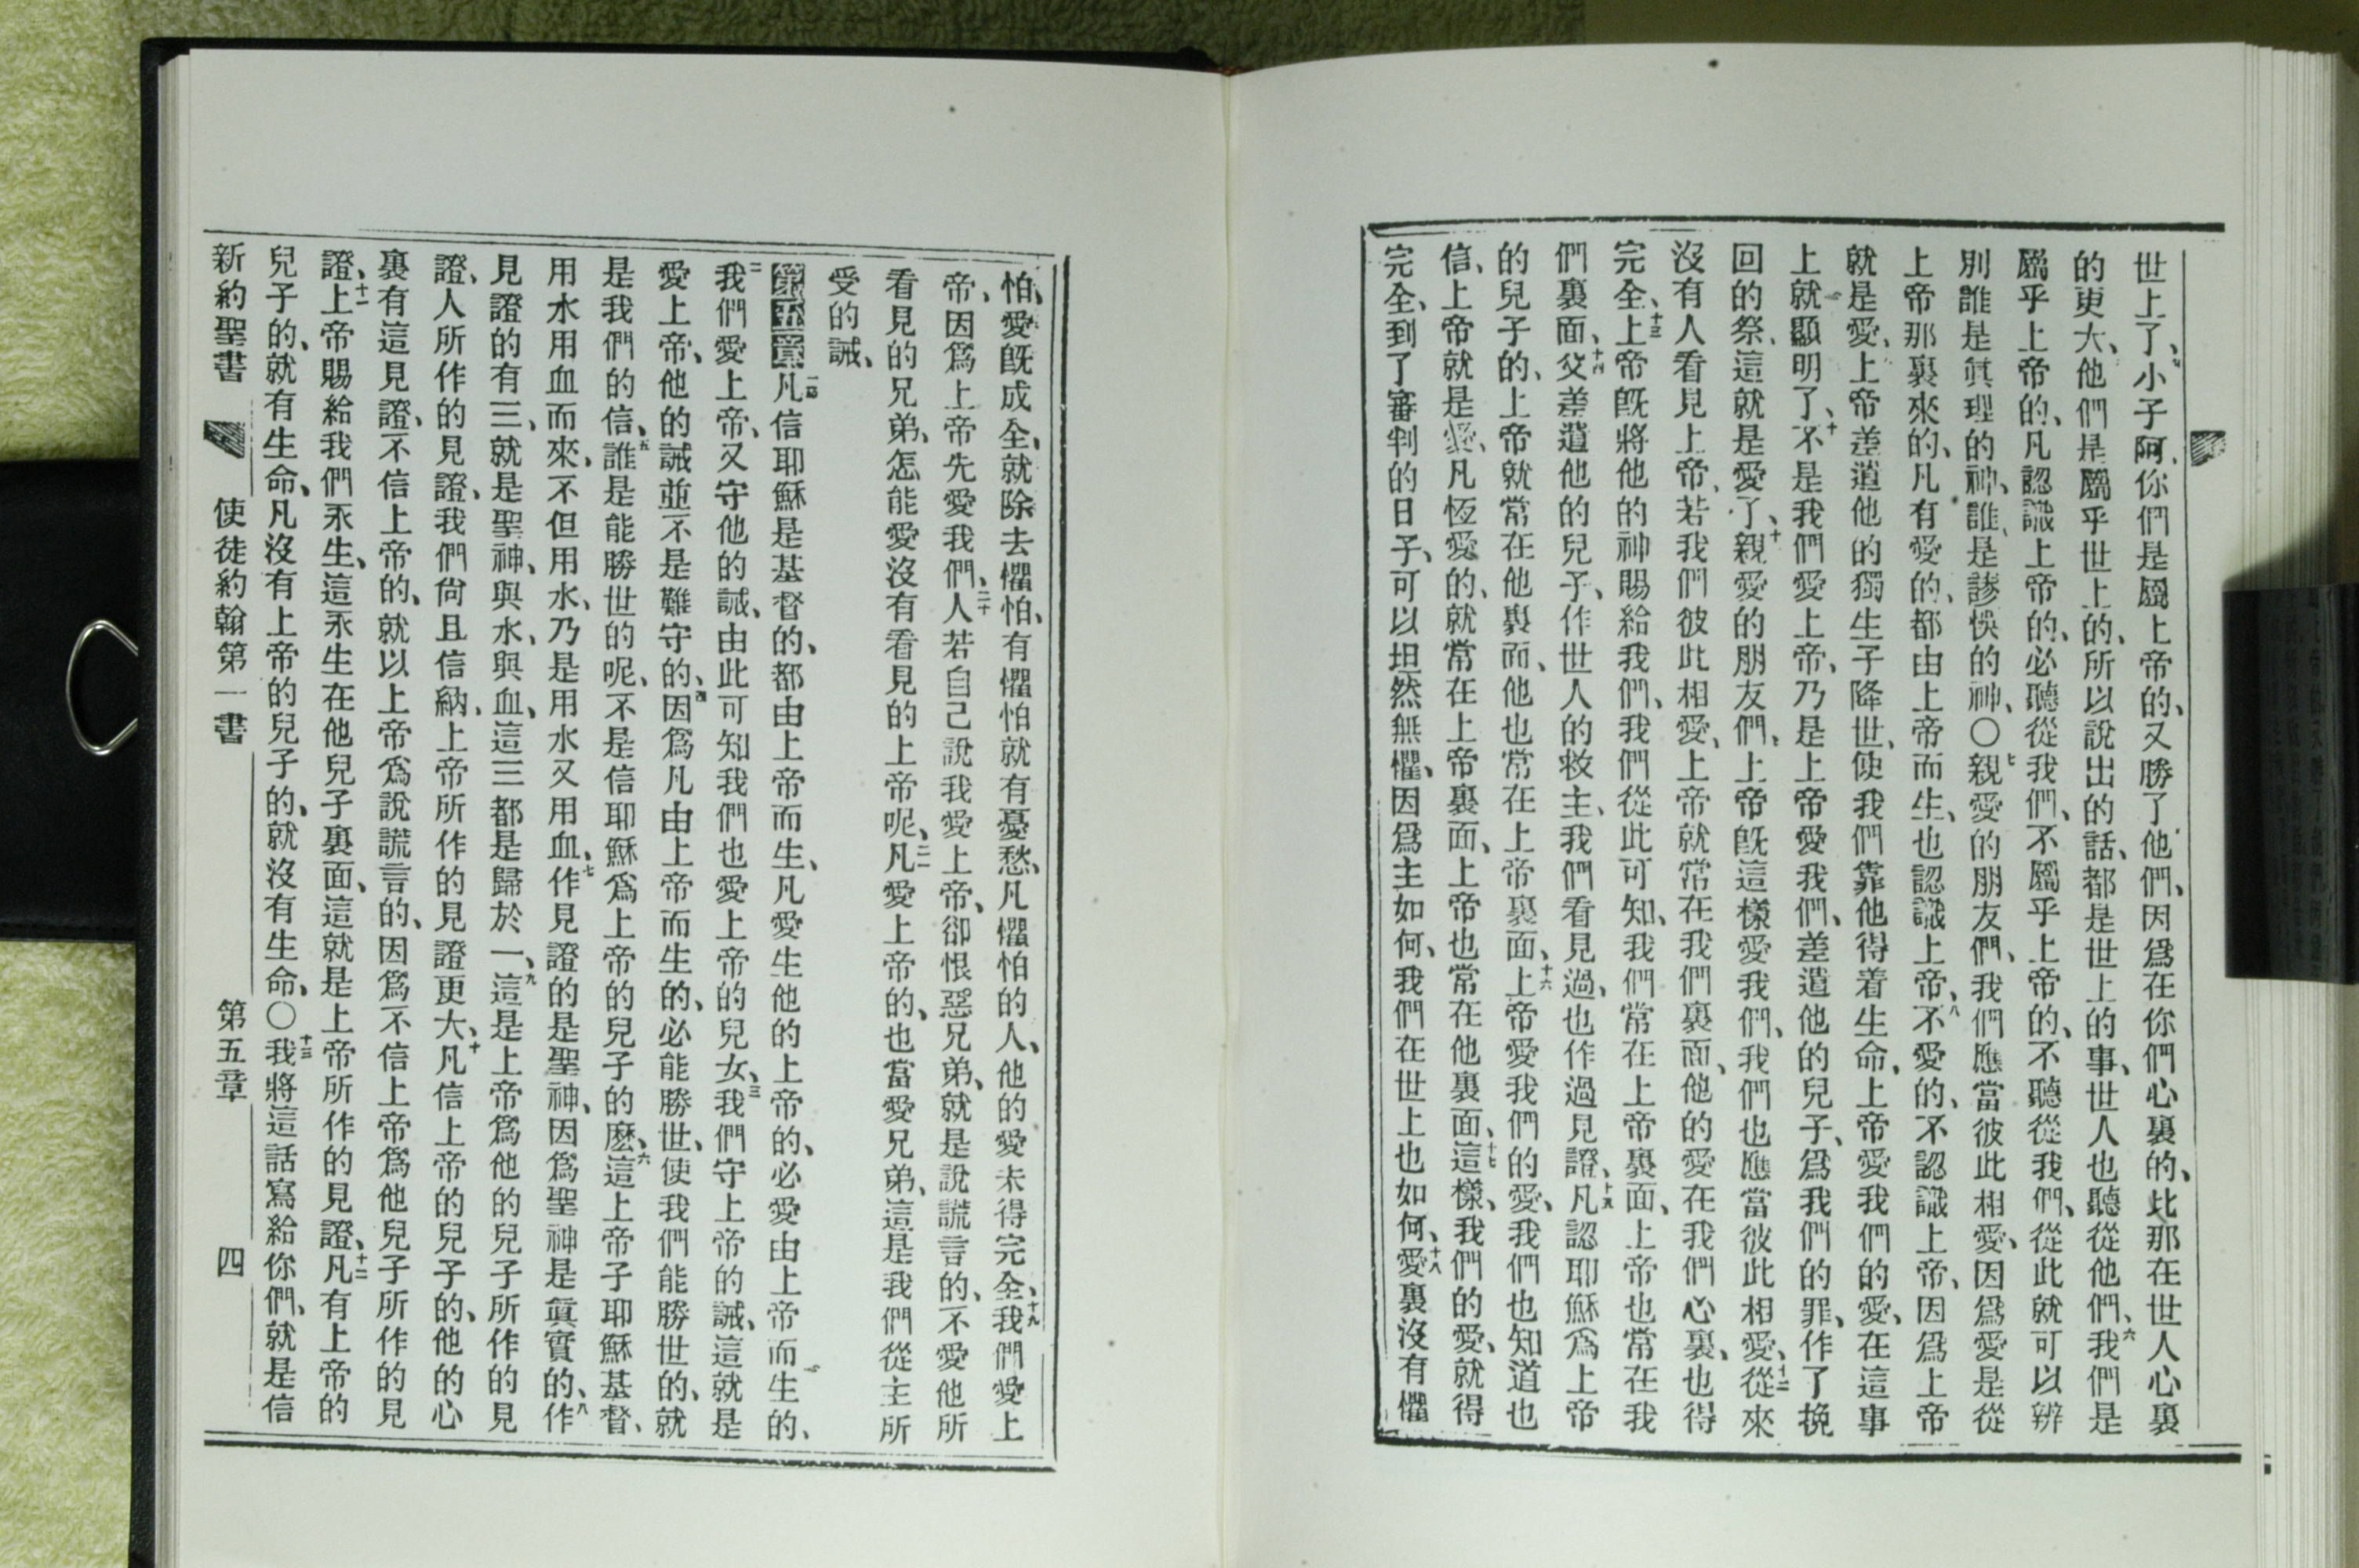 世上了、四小子阿、你們是屬上帝的、又勝了他們、因爲在你們心裏的、比那在世人心裏
的更大、五他們是屬乎世上的、所以說出的話、都是世上的事、世人也聽從他們、六我們是
屬乎上帝的、凡認識上帝的、必聽從我們、不屬乎上帝的、不聽從我們、從此就可以辨
別誰是眞理的神、誰是謬悞的神、〇七親愛的朋友們、我們應當彼此相愛、因爲愛是從
上帝那裏來的、凡有愛的、都由上帝而生、也認識上帝、八不愛的、不認識上帝、因爲上帝
就是愛、九上帝差遣他的獨生子降世、使我們靠他得着生命、上帝愛我們的愛、在這事
上就顯明了、十不是我們愛上帝、乃是上帝愛我們、差遣他的兒子、爲我們的罪、作了挽
回的祭、這就是愛了、十一親愛的朋友們、上帝旣這樣愛我們、我們也應當彼此相愛、十二從來
沒有人看見上帝、若我們彼此相愛、上帝就常在我們裏面、他的愛在我們心裏、也得
完全、十三上帝旣將他的神賜給我們、我們從此可知、我們常在上帝裏面、上帝也常在我
們裏面、十四父差遣他的兒子、作世人的救主、我們看見過、也作過見證、十五凡認耶穌爲上帝
的兒子的、上帝就常在他裏面、他也常在上帝裏面、十六上帝愛我們的愛、我們也知道也
信、上帝就是愛、凡恆愛的、就常在上帝裏面、上帝也常在他裏面、十七這樣、我們的愛、就得
完全、到了審判的日子、可以坦然無懼、因爲主如何、我們在世上也如何、十八愛裏沒有懼
怕、愛旣成全、就除去懼怕、有懼怕就有憂愁、凡懼怕的人、他的愛未得完全、十九我們愛上
帝、因爲上帝先愛我們、二十人若自己說我愛上帝、卻恨惡兄弟、就是說謊言的、不愛他所
看見的兄弟、怎能愛沒有看見的上帝呢、二一凡愛上帝的、也當愛兄弟、這是我們從主所
受的誡、
第五章 一凡信耶穌是基督的、都由上帝而生、凡愛生他的上帝的、必愛由上帝而生的、
二我們愛上帝、又守他的誡、由此可知我們也愛上帝的兒女、三我們守上帝的誡、這就是
愛上帝、他的誡並不是難守的、四因爲凡由上帝而生的、必能勝世、使我們能勝世的、就
是我們的信、五誰是能勝世的呢、不是信耶穌爲上帝的兒子的麽、六這上帝子耶穌基督、
用水用血而來、不但用水、乃是用水又用血、七作見證的是聖神、因爲聖神是眞實的、八作
見證的有三、就是聖神、與水、與血、這三都是歸於一、九這是上帝爲他的兒子所作的見
證、人所作的見證、我們尙且信納、上帝所作的見證更大、十凡信上帝的兒子的、他的心
裏有這見證、不信上帝的、就以上帝爲說謊言的、因爲不信上帝爲他兒子所作的見
證、十一上帝賜給我們永生、這永生在他兒子裏面、這就是上帝所作的見證、十二凡有上帝的
兒子的、就有生命、凡沒有上帝的兒子的、就沒有生命、〇十三我將這話寫給你們、就是信
新約聖書 使徒約翰第一書 第五章 四